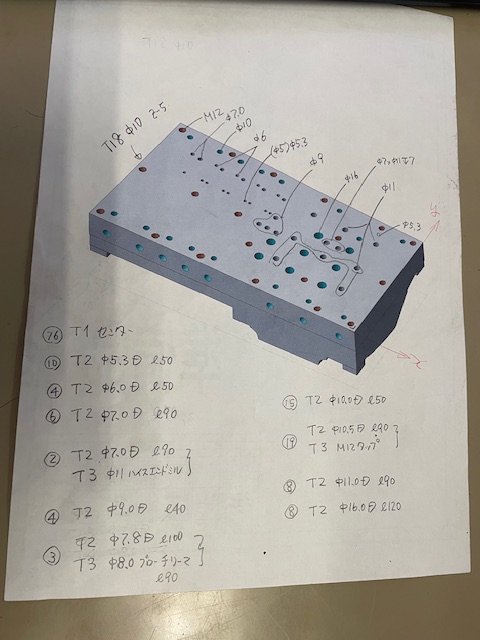 T18 φ10 Z-5
M12
φ7.0
φ10
φ6
(φ5)φ5.3
φ9
φ16
φ11
φ5.3
x
76 T1 センター
10 T2 φ5.3キリ l50
4 T2 φ6.0キリ l50
6 T2 φ7.0キリ l90
2 T2 φ7.0キリ l90
T3 φ11 ハイスエンドミル
4 T2 φ9.0キリ l40
3 T2 φ7.8キリ l100
T3 φ8.0 ブローチリーマ
l90
15 T2 φ10.0キリ l50
19 T2 φ10.5キリ l90
T3 M12タップ
8 T2 φ11.0キリ l90
8 T2 φ16.0キリ l120